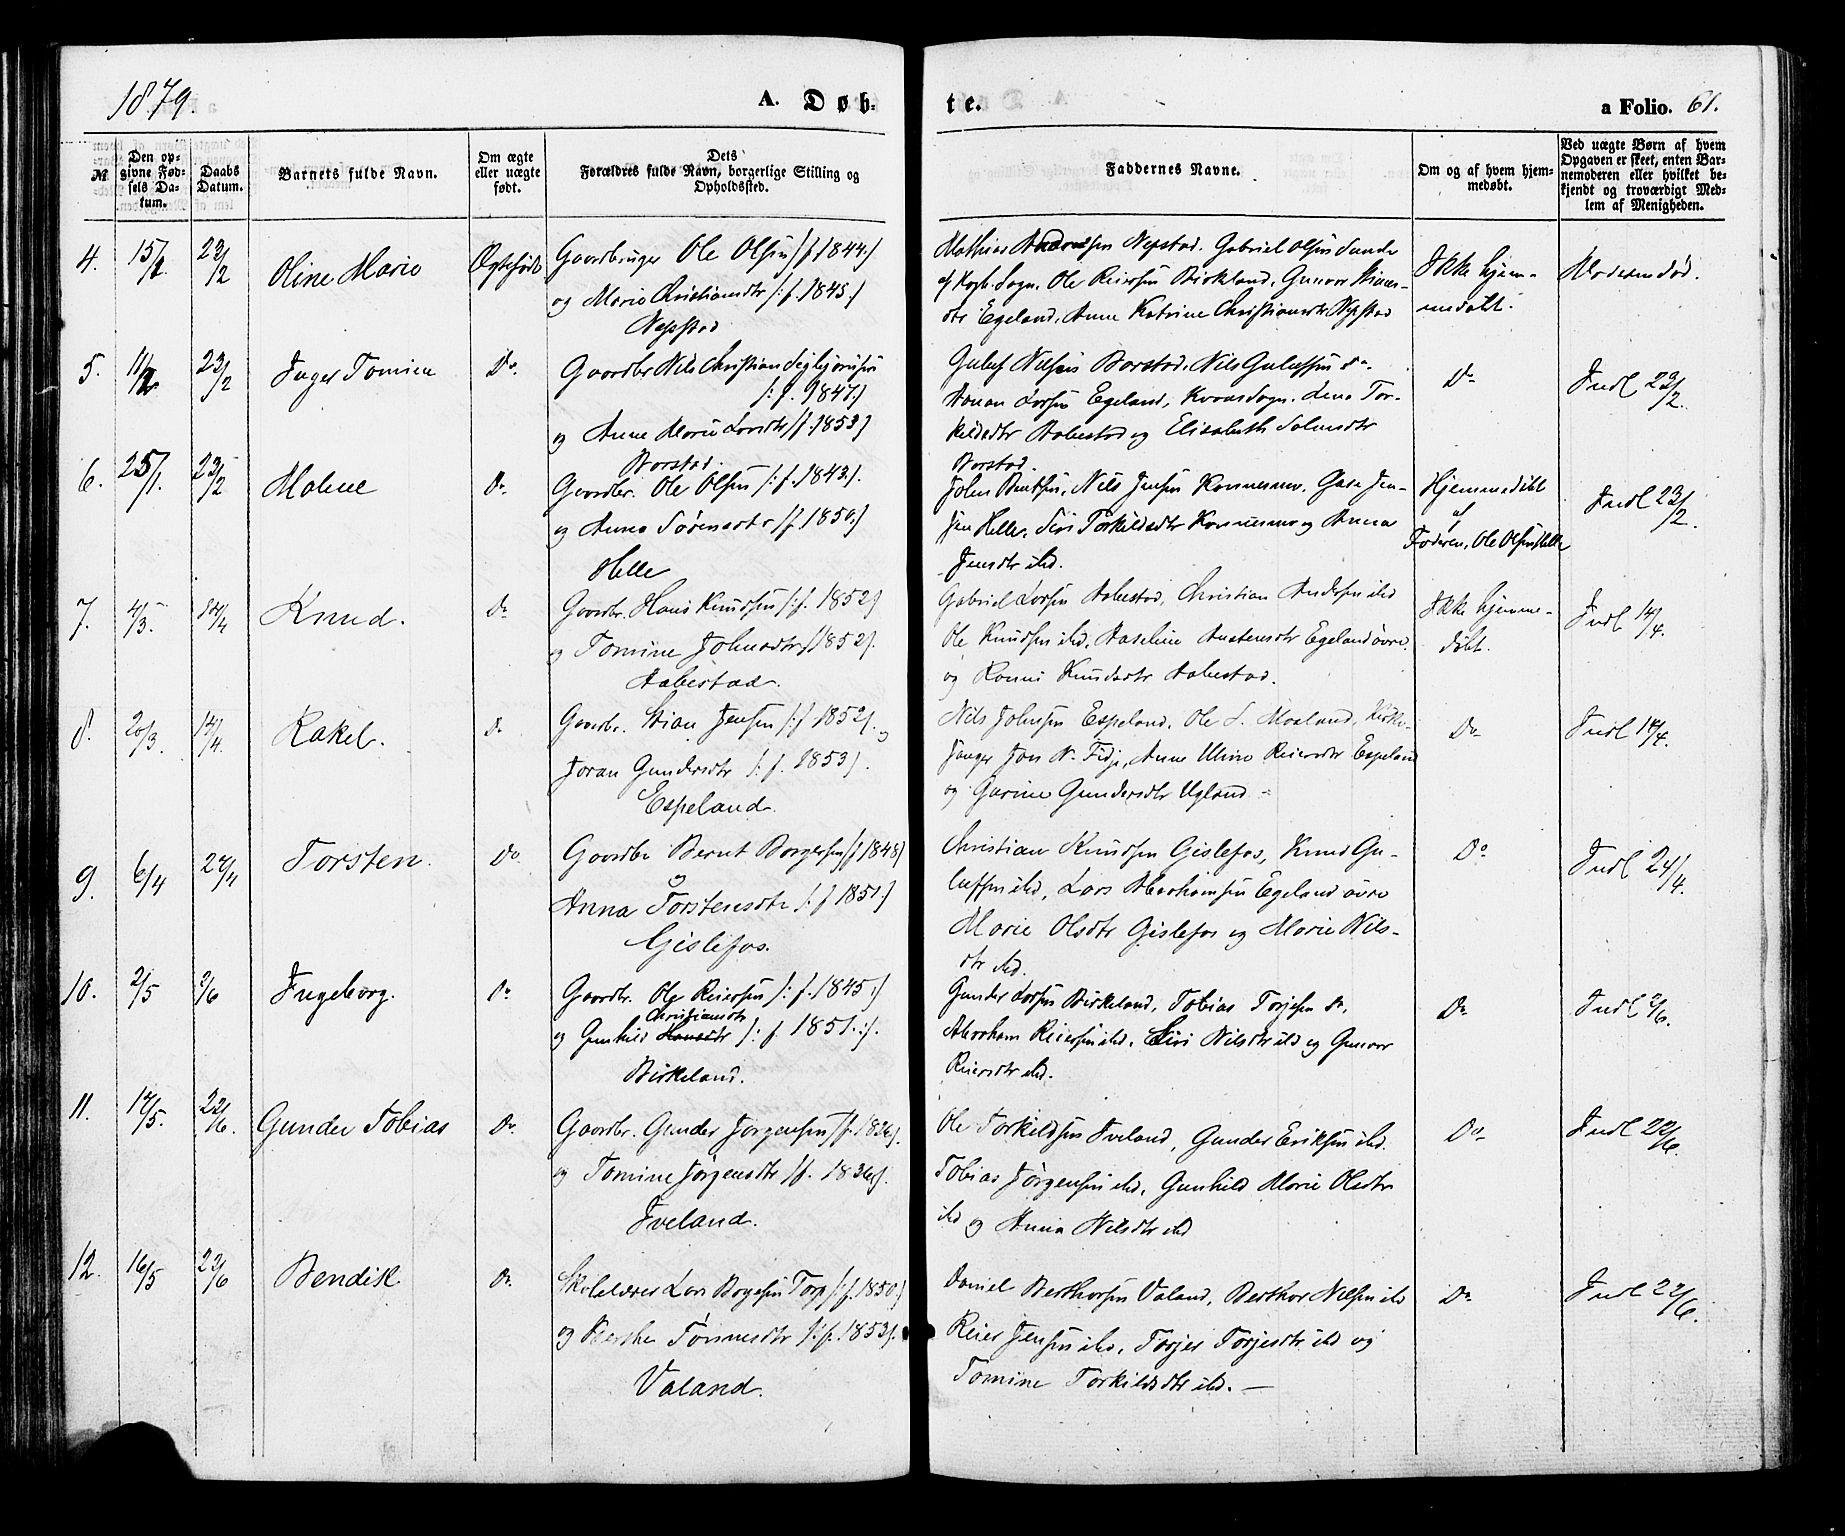 1879.
A. Døb-
te.
a Folio. 61.
№
Den op-
givne Fød-
sels Da-
tum.
Daabs
Datum.
Barnets fulde Navn.
Om ægte
eller uægte
født.
Dets
Forældres fulde Navn, borgerlige Stilling og
Opholdssted.
Faddernes Navne.
Om og af hvem hjem-
medøbt.
Ved uægte Børn af hvem
Opgaven er skeet, enten Bar-
nemoderen eller hvilket be-
kjendt og troværdigt Med-
lem af Menigheden.
4.
15/2.
23/2
Oline Marie
Ægtefødt
Gaardbruger Ole Olsen /: f. 1844 :/
og Marie Christiansdtr /: f. 1845 :/
Nepstad
Mathias Andersen Nepstad. Gabriel Olsen Sunde
Ole Reiersen Birkland, Gunvor
dtr Egeland, Anne Katrine Christiansdtr Nepstad
Ikke hjem-
medøbt.
død.
5.
11/2
23/2
Inger Tomine
Do.
Gaardbr Nils Christian
/: f. 1847 :/
og Anne Marie Larsdtr /: f. 1853 :/
Borstad.
Guluf Nilsen Borstad, Nils Gulufsen do.
Larsen Egeland, Kvaas Sogn. Lena Tor-
kildsdtr Aabestad og Elisabeth Salvesdtr
Borstad.
Do
Indl 23/2.
6.
25/1.
23/2
Malene
Do.
Gaardbr. Ole Olsen /: f. 1843 :/.
og Anna Sørensdtr /: f. 1850 :/
Helle
John Bentsen, Nils Jensen Konnesmo.
sen Helle, Siri Torkildsdtr Konnesmo og Anna
Jensdtr ibd.
Hjemmedøbt
af
Faderen, Ole Olsen Helle
Indl 23/2.
7.
4/3.
14/4
Knud.
Do
Gaardbr. Hans Knudsen /: f. 1852 :/
og Tomine Johnsdtr /: 1852 :/.
Aabestad.
Gabriel Larsen Aabestad, Christian Andersen ibd
Ole Knudsen ibd, Aaseline Austensdtr Egeland øvre
og Ronni Knudsdtr Aabestad.
Ikke hjemme-
døbt.
Indl 14/4.
8.
20/3.
14/4.
Rakel.
Do
Gaardbr. Stian Jensen /: f. 1852 :/. og
Joran Gundersdtr /: f. 1853 :/.
Espeland.
Nils Johnsen Espeland. Ole S. Moland, Kirke-
sanger Jens N. Fidje, Anne Reiersdtr Espeland
og Gurine Gundersdtr Ugland -
Do
Indl 14/4.
9.
6/4
24/4
Torsten.
Do
Gaardbr Bernt Borgersen /: f 1848 :/
og
Anna Torstensdtr /: f 1851 :/
Gislefos.
Christian Knudsen Gislefos, Knud Gu-
lufsen ibd, Lars Abrahamsen Egeland øvre
Marie Olsdtr Gislefos og Marie Nils-
dtr ibd.
Do
Indl 24/4.
10.
2/5
2/6
Ingeborg.
Do
Gaardbr. Ole Reiersen /: f. 1845 :/
Christiansdtr
og Gunhild Hansdtr /: f. 1851 :/.
Birkeland.
Gunder Larsen Birkeland, Tobias Torjesen do.
Abraham Reiersen ibd. Siri Nilsdtr ibd og Gunvor
Reiersdtr ibd.
Do
Indl 2/6.
11.
14/5.
22/6.
Gunder Tobias
Do.
Gaardbr. Gunder Jørgensen /: f. 1836 :/.
og Tomine Jørgensdtr /: f. 1836 :/.
Iveland.
Ole Torkildsen Iveland, Gunder Eriksen ibd.
Tobias Jørgensen ibd, Gunhild Marie Olsdtr
ibd og Anna Nilsdtr ibd
Do
Indl 22/6.
12.
16/5
22/6
Bendik
Do.
Skolelærer Lars Torp /: f. 1850 :/
og Berthe Tønnesdtr /: f. 1853 :/.
Valand.
Daniel Berthorsen Valand, Berthor Nilsen ibd
Reier Jensen ibd, Torjer Torjesdtr ibd og
Tomine Torkildsdtr ibd. —
Do
Indl 22/6.